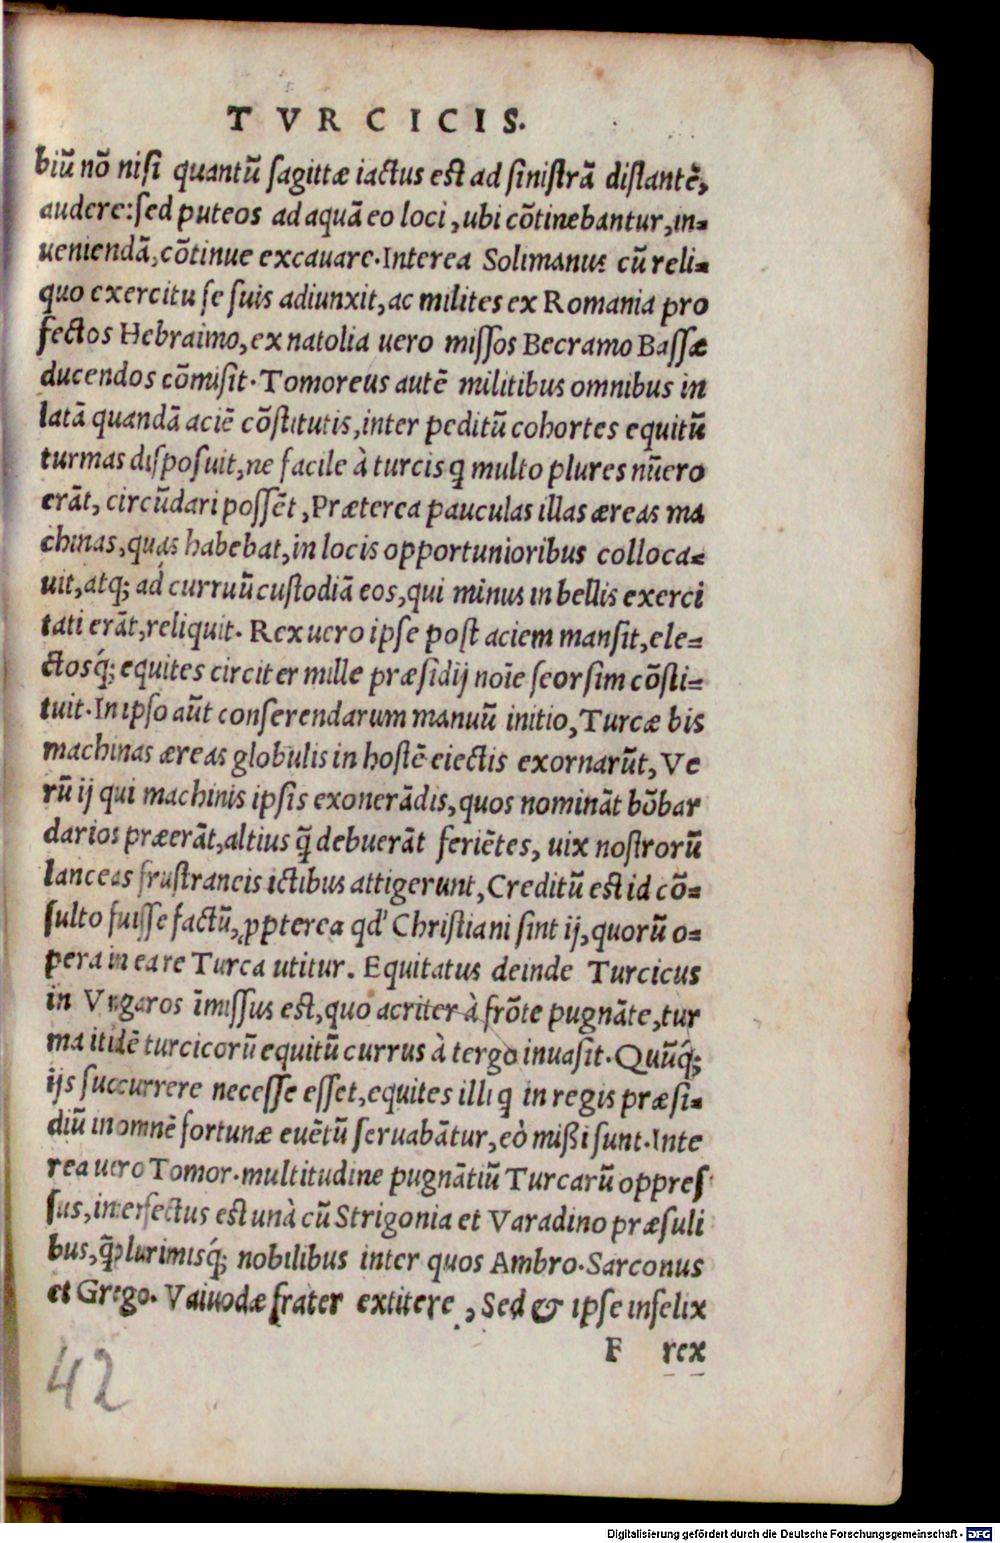 TVRCICIS.
biũ nõ nisi quantũ sagittæ iactus est ad sinistrã distantẽ,
audere: sed puteos ad aquã eo loci, ubi cõtinebantur, in=
ueniendã, cõtinue excauare. Interea Solimanus cũ reli=
quo exercitu se suis adiunxit, ac milites ex Romania pro
fectos Hebraimo, ex natolia uero missos Becramo Bassæ
ducendos cõmisit. Tomoreus autẽ militibus omnibus in
latã quandã aciẽ cõstitutis, inter peditũ cohortes equitũ
turmas disposuit, ne facile à turcis q̃ multo plures nũero
erãt, circũdari possẽt, Præterea pauculas illas æreas ma
chinas, quas habebat, in locis opportunioribus colloca=
uit, atq; ad curruũ custodiã eos, qui minus in bellis exerci
tati erãt, reliquit. Rex uero ipse post aciem mansit, ele=
ctosq́; equites circiter mille præsidij noĩe seorsim cõsti=
tuit. In ipso aũt conserendarum manuũ initio, Turcæ bis
machinas æreas globulis in hostẽ eiectis exornarũt, Ve
rũ ij qui machinis ipsis exonerãdis, quos nominãt bõbar
darios præerãt, altius q̃ debuerãt feriẽtes, uix nostrorũ
lanceas frustraneis ictibus attigerunt, Creditũ est id cõ=
sulto fuisse factũ, ꝓpterea qd' Christiani sint ij, quorũ o=
pera in ea re Turca utitur. Equitatus deinde Turcicus
in Vngaros ĩmissus est, quo acriter à frõte pugnãte, tur
ma itidẽ turcicorũ equitũ currus à tergo inuasit. Quũq́;
ijs succurrere necesse esset, equites illi q̃ in regis præsi=
diũ in omnẽ fortunæ euẽtũ seruabãtur, eò mißi sunt. Inte
rea uero Tomor. multitudine pugnãtiũ Turcarũ oppres
sus, interfectus est unà cũ Strigonia et Varadino præsuli
bus, q̃plurimisq́; nobilibus inter quos Ambro. Sarconus
et Grego. Vaiuodæ frater extitere, Sed & ipse infelix
F rex
42
Digitalisierung gefördert durch die Deutsche Forschungsgemeinschaft - DFG